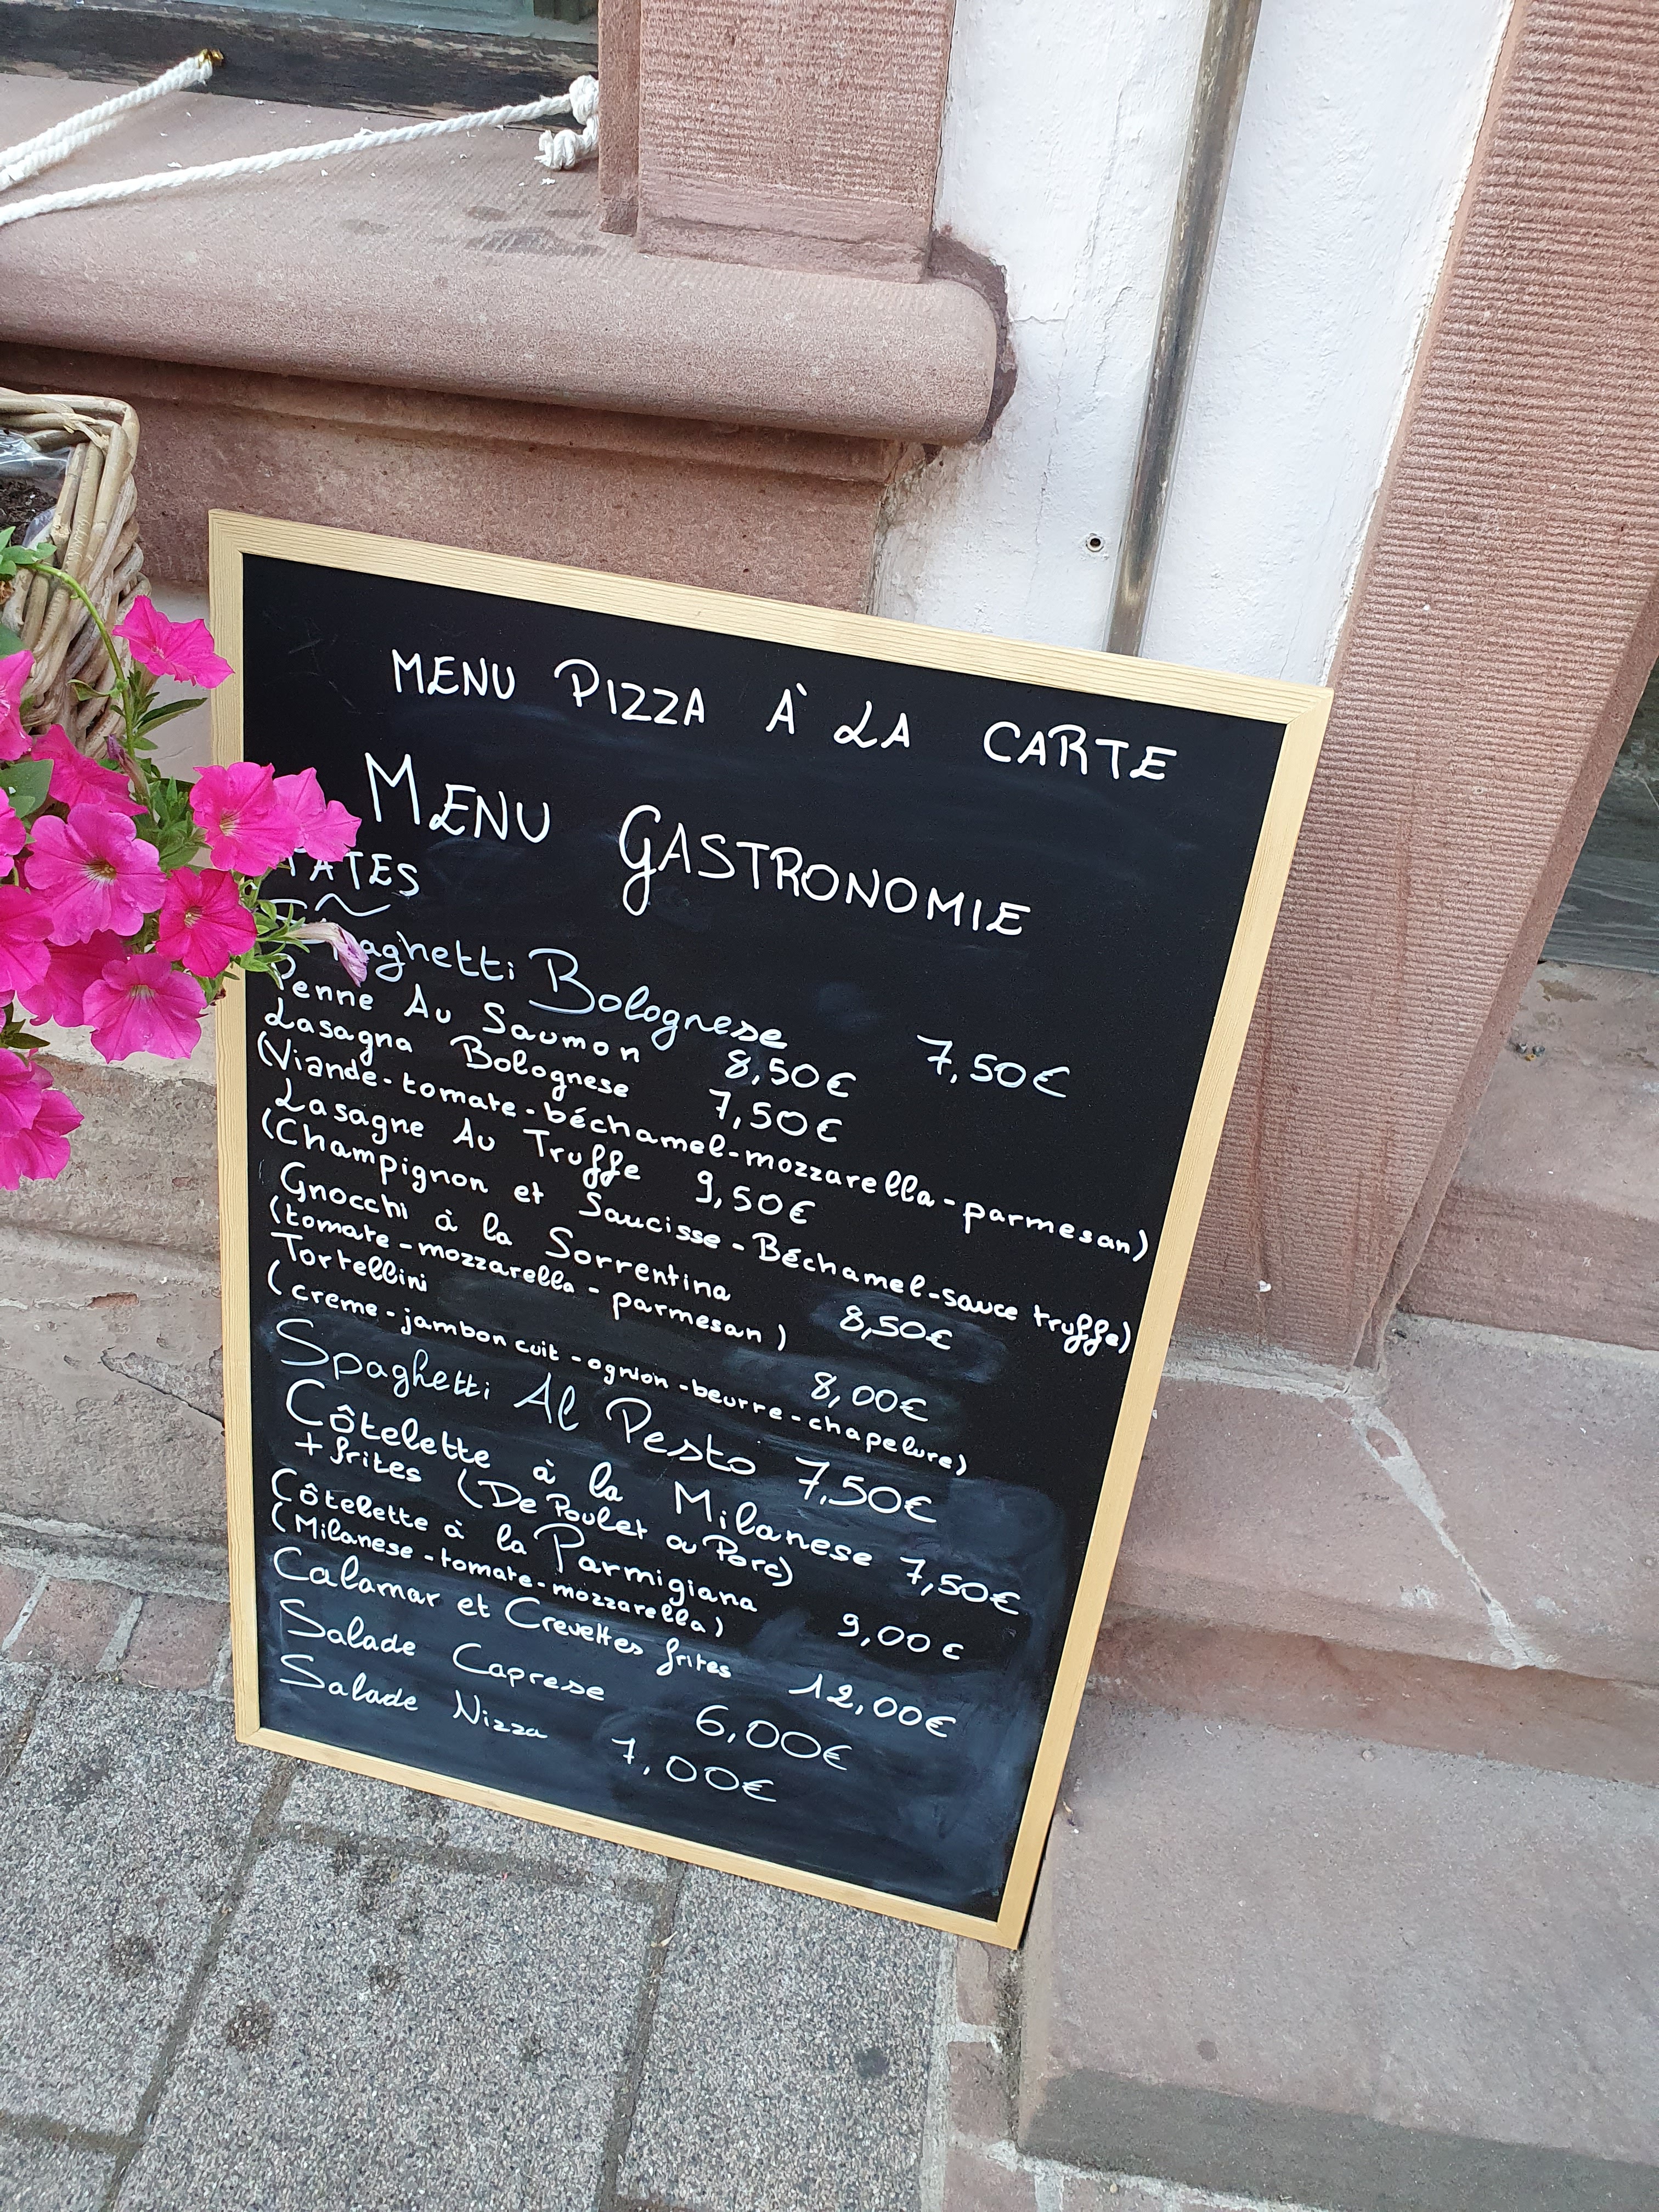 MENU PIZZA À LA CARTE
MENU GASTRONOMIE
PATES
Spaghetti Bolognese 7,50€
Penne Au Saumon 8,50€
Lasagna Bolognese 7,50€
(Viande-tomate-béchamel-mozzarella-parmesan)
Lasagne Au Truffe 9,50€
(Champignon et Saucisse-Béchamel-sauce truffe)
Gnocchi à la Sorrentina 8,50€
(tomate-mozzarella-parmesan)
Tortellini 8,00€
(creme-jambon cuit-ognion-beurre-chapelure)
Spaghetti Al Pesto 7,50€
Côtelette à la Milanese 7,50€
+ frites (De Poulet ou Porc)
Côtelette à la Parmigiana 9,00€
(Milanese-tomate-mozzarella)
Calamar et Crevettes frites 12,00€
Salade Caprese 6,00€
Salade Nizza 7,00€